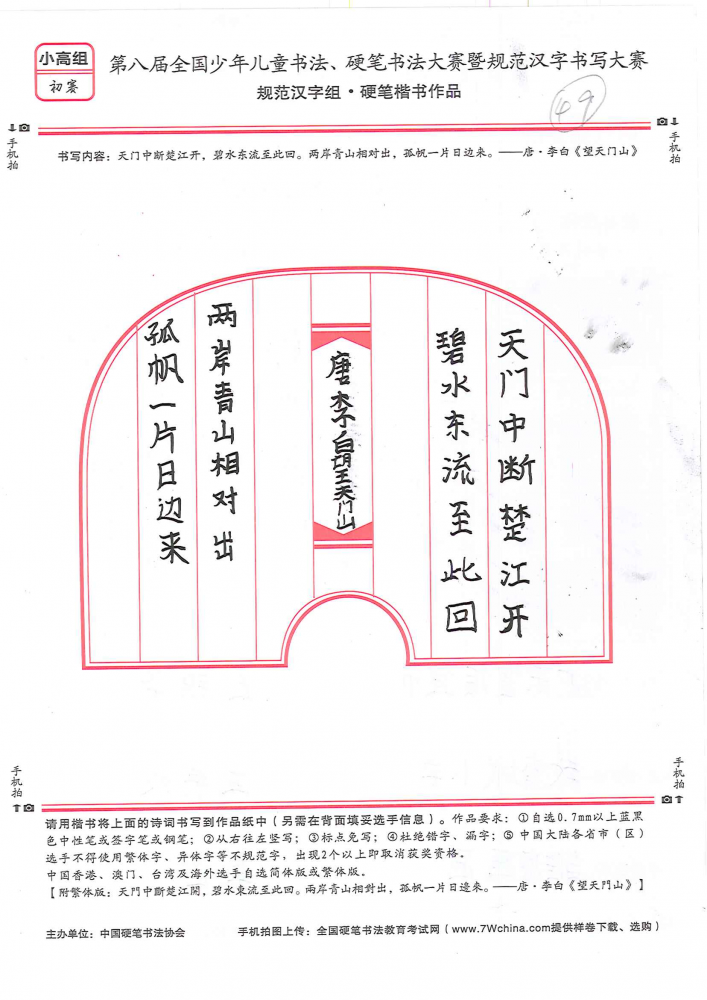 小高组
初赛
第八届全国少年儿童书法、硬笔书法大赛暨规范汉字书写大赛
规范汉字组·硬笔楷书作品
49
手机拍
手机拍
书写内容：天门中断楚江开，碧水东流至此回。两岸青山相对出，孤帆一片日边来。——唐·李白《望天门山》
天门中断楚江开
碧水东流至此回
唐李白望天门山
两岸青山相对出
孤帆一片日边来
手机拍
手机拍
请用楷书将上面的诗词书写到作品纸中（另需在背面填妥选手信息）。作品要求：①自选0.7mm以上蓝黑
色中性笔或签字笔或钢笔；②从右往左竖写；③标点免写；④杜绝错字、漏字；⑤中国大陆各省市（区）
选手不得使用繁体字、异体字等不规范字，出现2个以上即取消获奖资格。
中国香港、澳门、台湾及海外选手自选简体版或繁体版。
【附繁体版：天門中斷楚江開，碧水東流至此回。兩岸青山相對出，孤帆一片日邊來。——唐·李白《望天門山》】
主办单位：中国硬笔书法协会
手机拍图上传：全国硬笔书法教育考试网（www.7Wchina.com提供样卷下载、选购）